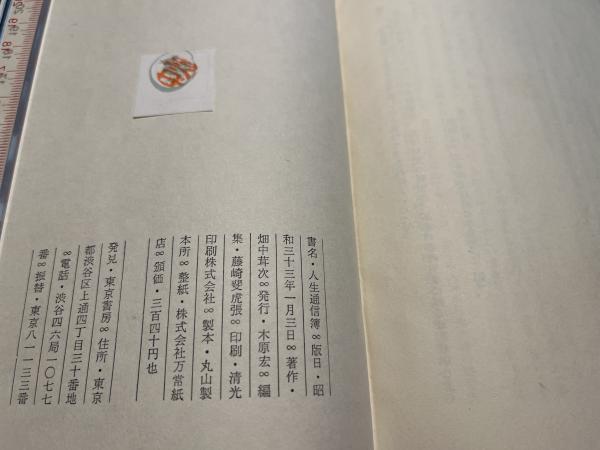 書名・人生通信簿∞版日・昭
和三十三年一月三日∞著作・
畑中茸次∞発行・木原宏∞編
集・藤崎斐虎張∞印刷・清光
印刷株式会社∞製本・丸山製
本所∞整紙・株式会社万常紙
店∞頒価・三百四十円也
発兌・東京書房∞住所・東京
都渋谷区上通四丁目三十番地
∞電話・渋谷四六局一〇七七
番∞振替・東京八一一三三番